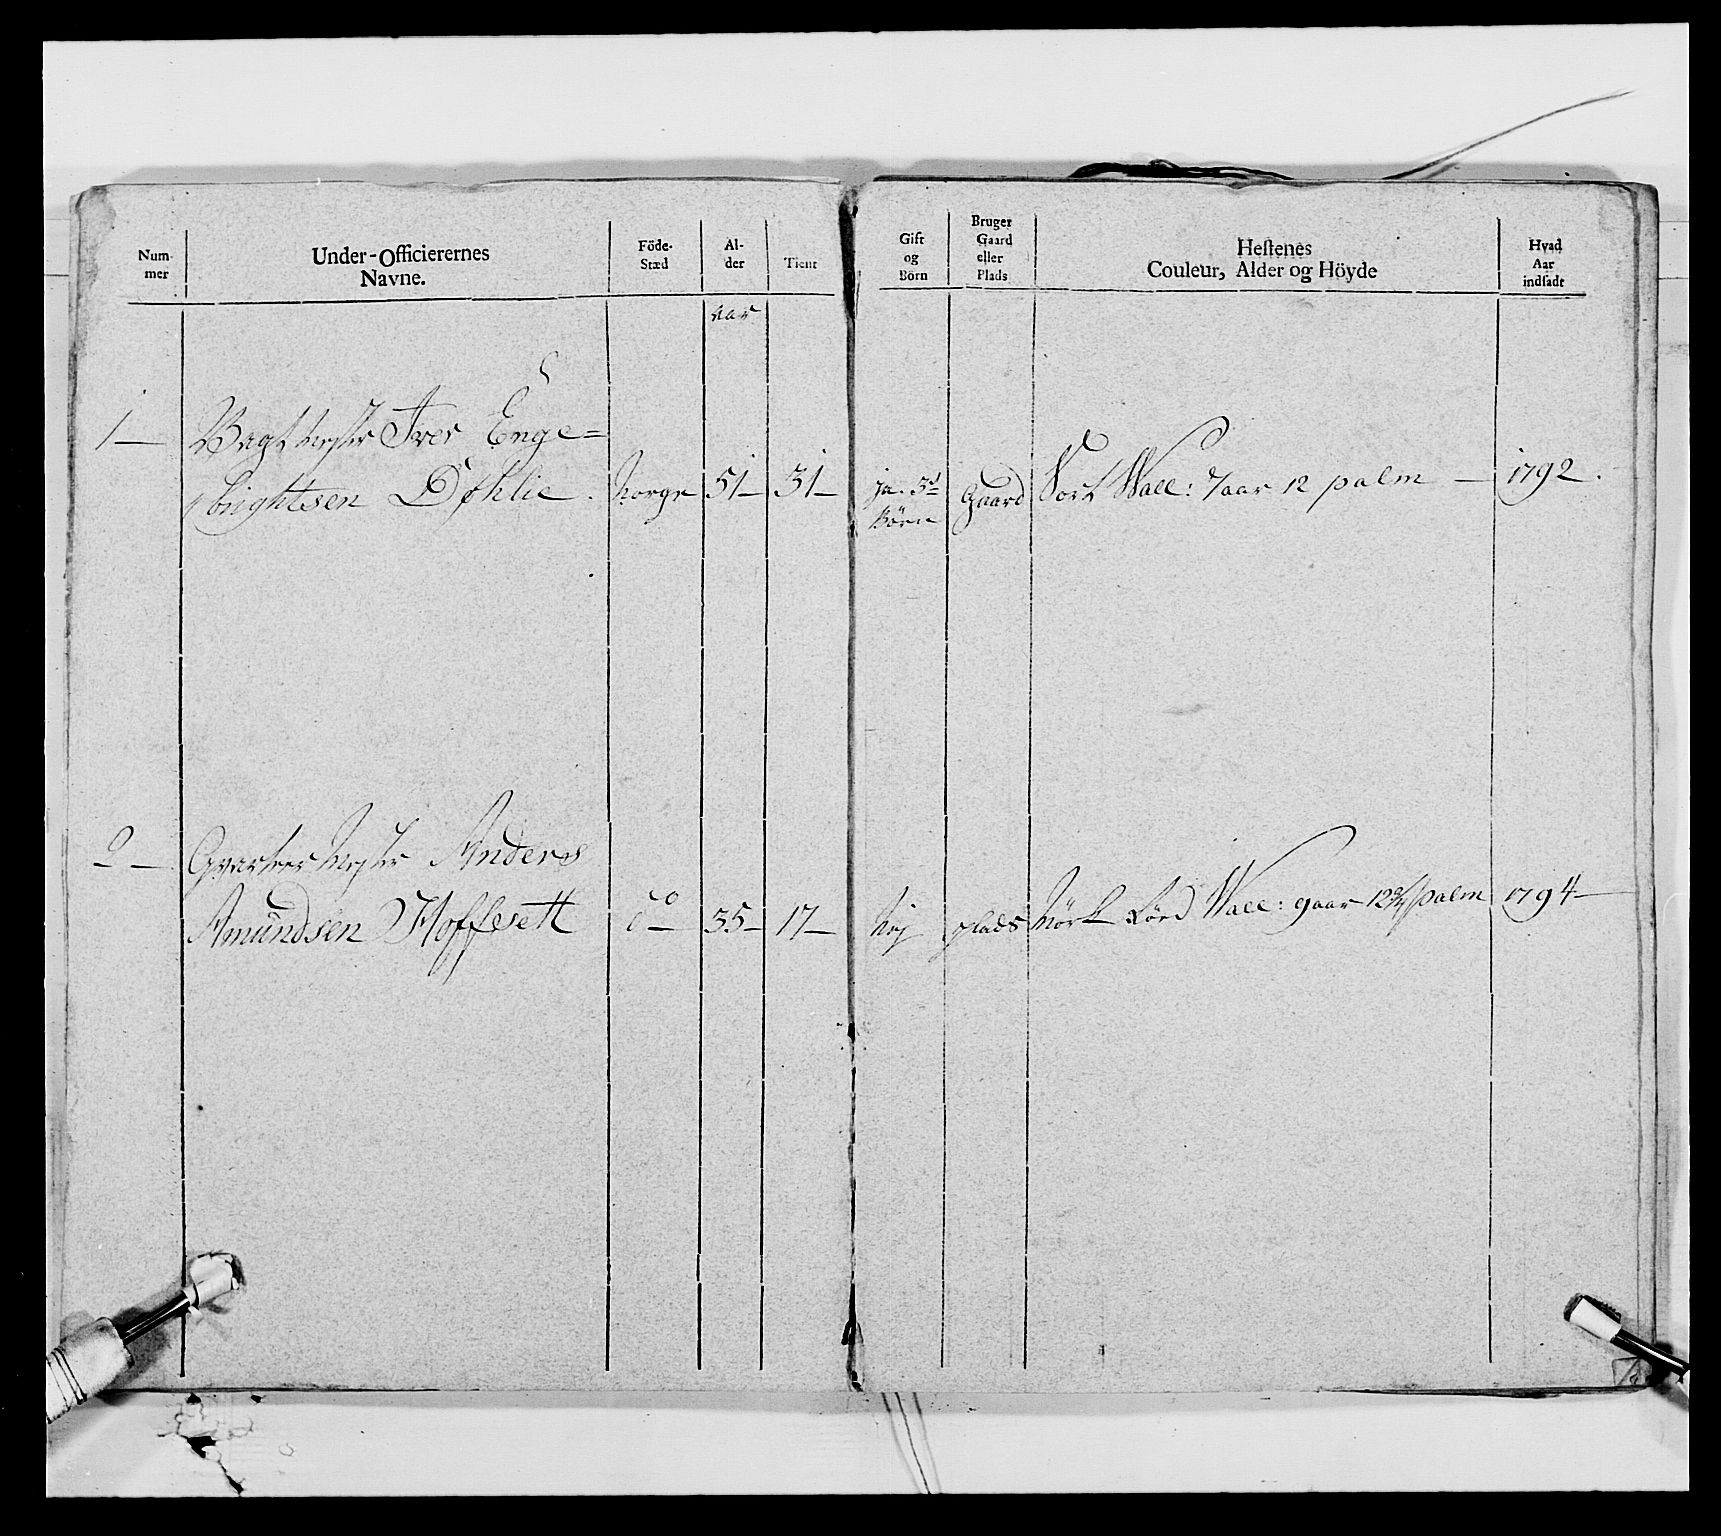 Num-
mer
Under-Officierernes
Navne.
Föde-
Stæd
Al-
der
Tient
Gift
og
Börn
Bruger
Gaard
eller
Plads
Hestenes
Couleur, Alder og Höyde
Hvad
Aar
indsadt
aar
1 — Vagtmester Iver Enge=
brightsen Døhlie. Norge 51— 31— ja. 3d Gaard Sort Wall: 7 aar 12 palm — 1792.
Börn
2 — Qvarteermester Anders
Amundsen Hoffsett do— 35— 17— Nej plads Mörk Wall: 9 aar palm 1794—